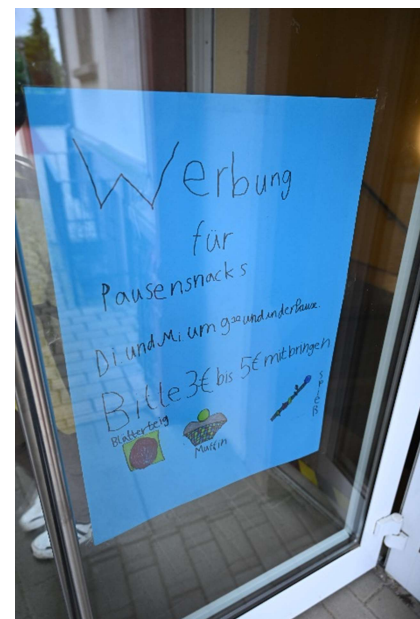 Werbung
für
Pausensnacks
Di und Mi um 9³⁰ und in der Pause.
Bitte 3€ bis 5€ mitbringen
Blätterteig
Muffin
Spieß